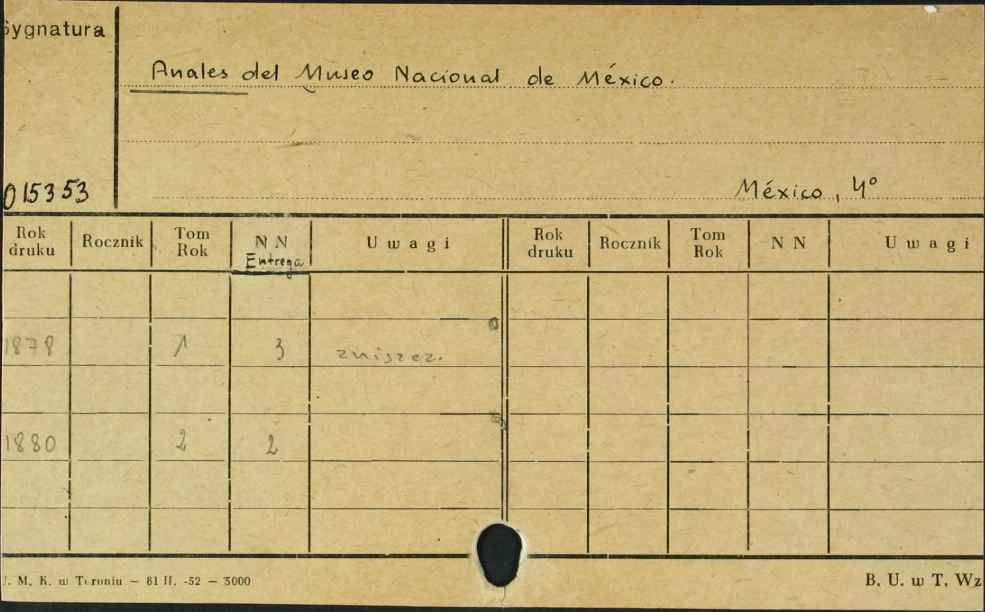 Sygnatura
Anales del Museo Nacional de México.
015353
México, 4°
Rok druku Rocznik Tom Rok N N Entrega Uwagi Rok druku Rocznik Tom Rok N N Uwagi
1878 1 3 zniszcz.
1880 2 2
U. M. K. w Toruniu — 61 II. -52 — 3000
B. U. w T. Wz